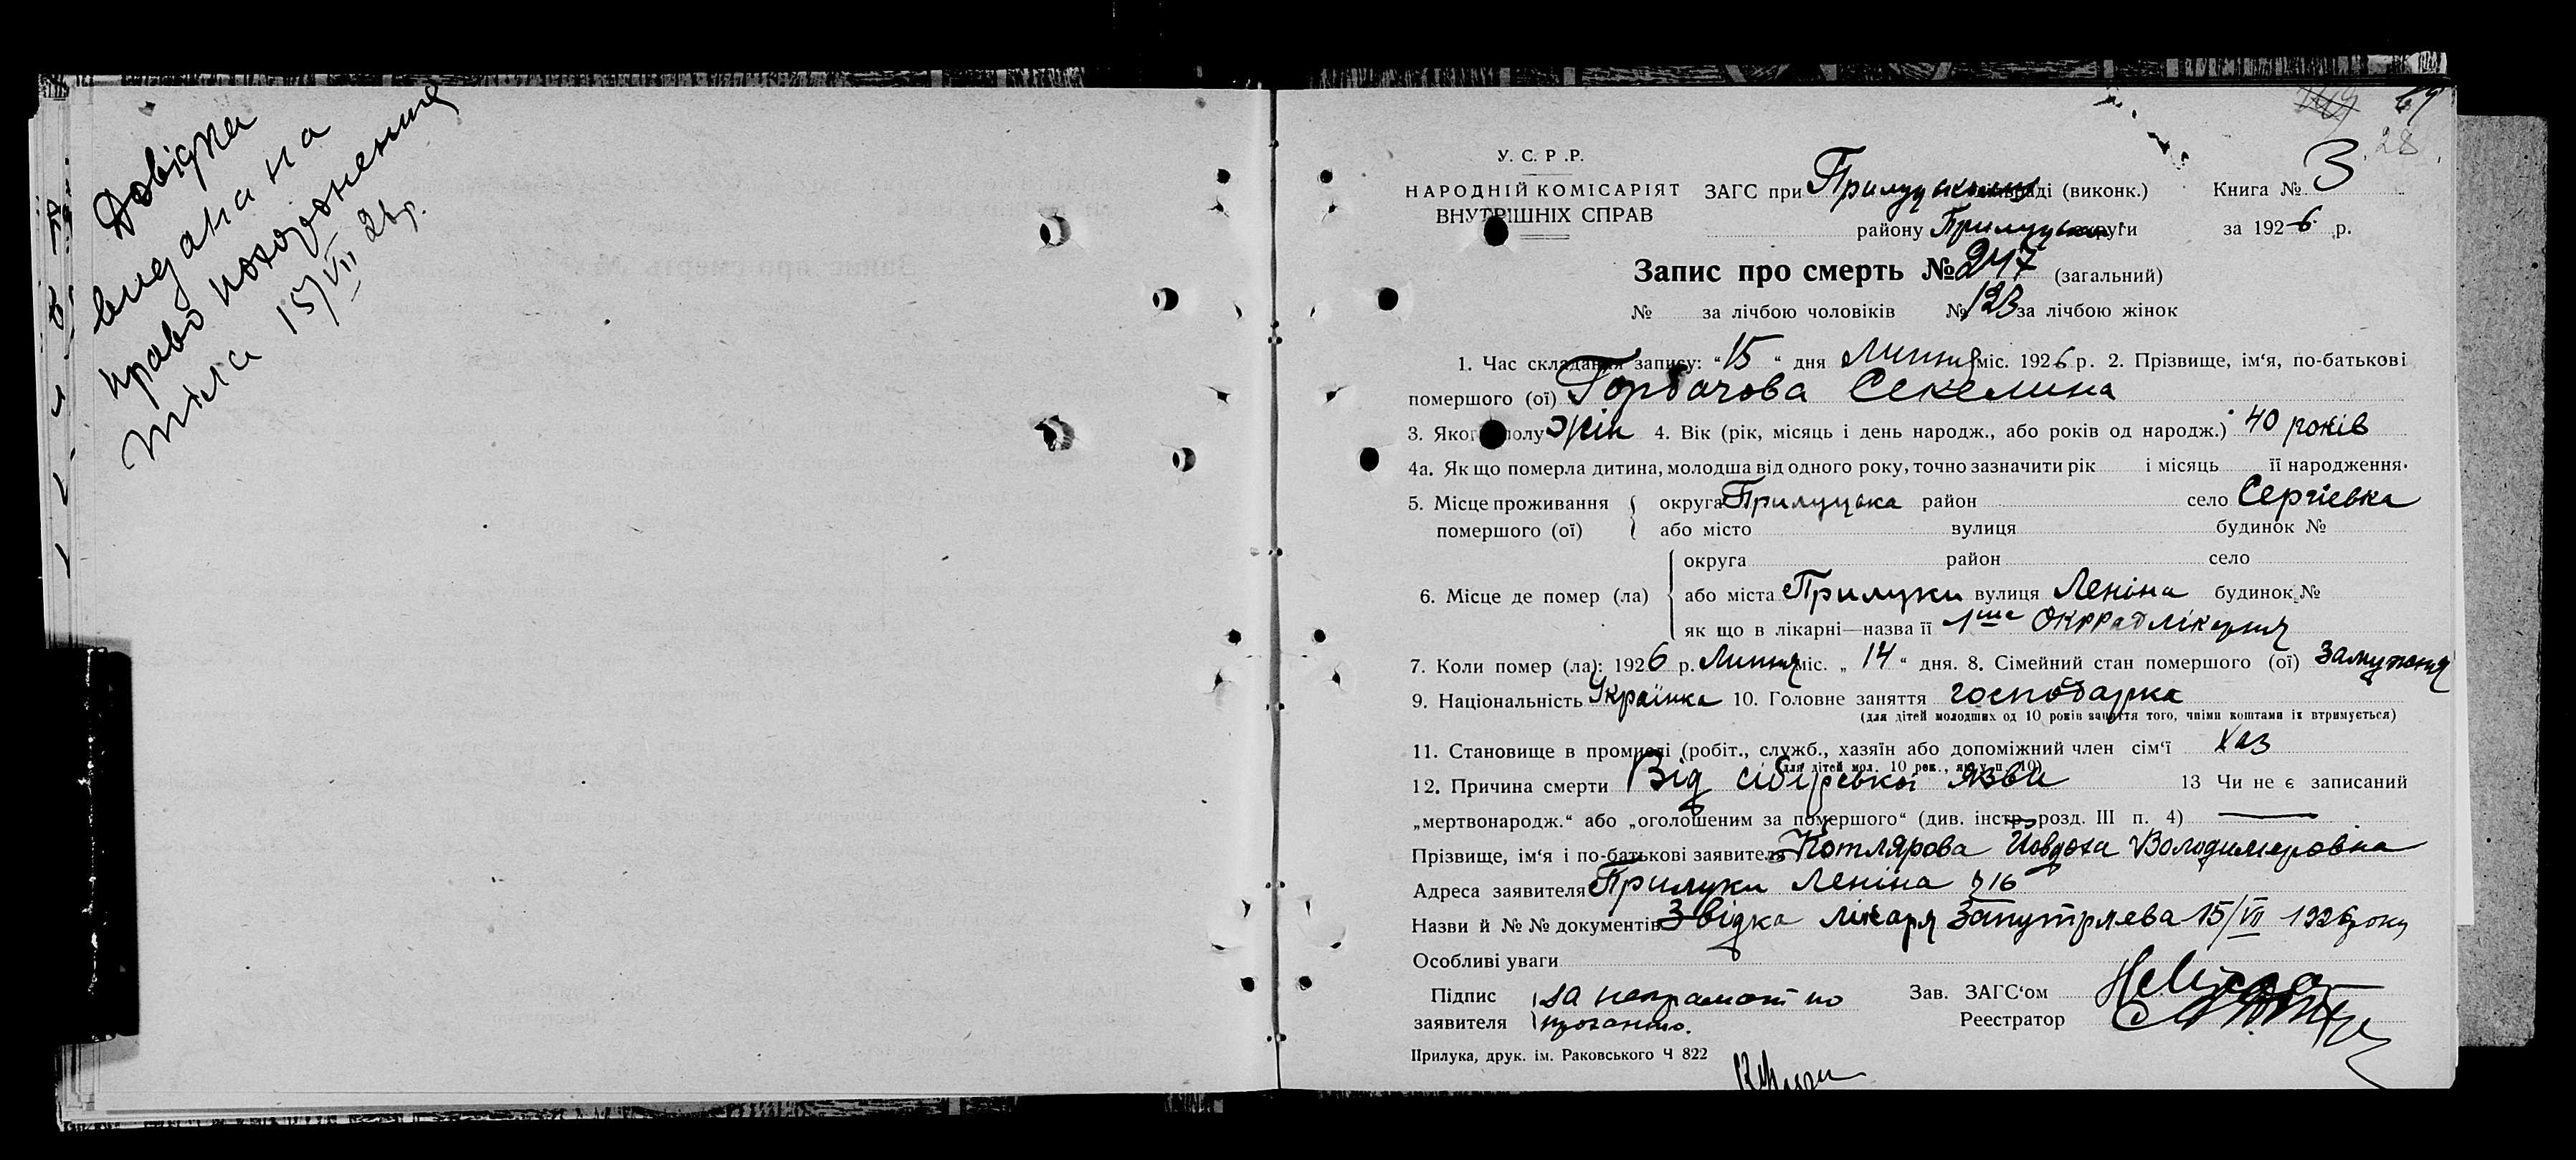 Довідка
видана на
право похоронения
тіла 15/VII 26 р.
69
28
У. С. Р. Р.
НАРОДНІЙ КОМІСАРІЯТ
ВНУТРІШНІХ СПРАВ
ЗАГС при Прилуцькому раді (виконк.)
Книга № 3
району Прилуцької округи
за 1926 р.
Запис про смерть № 247 (загальний)
№ за лічбою чоловіків № 123 за лічбою жінок
1. Час складання запису: “15“ дня Липня міс. 1926 р. 2. Прізвище, ім‘я, по-батькові
помершого (ої) Горбачова Секелина
3. Якого полу Жін 4. Вік (рік, місяць і день народж., або років од народж.) 40 років
4а. Як що померла дитина, молодша від одного року, точно зазначити рік і місяць її народження.
5. Місце проживання округа Прилуцька район село Сергіевка
помершого (ої) або місто вулиця будинок №
округа район село
6. Місце де помер (ла) або міста Прилуки вулиця Леніна будинок №
як що в лікарні—назва її 1ша Окррадлікарня
7. Коли помер (ла): 1926 р. Липня міс. „14“ дня. 8. Сімейний стан помершого (ої) Замужня
9. Національність Українка 10. Головне заняття господарка
(для дітей молодших од 10 років заняття того, чиїми коштами їх втримується)
11. Становище в промислі (робіт., служб., хазяїн або допоміжний член сім‘ї Хаз
(для дітей мол. 10 рок., як у п. 10)
12. Причина смерти Від сібірської язви 13 Чи не є записаний
„мертвонародж.“ або „оголошеним за помершого“ (див. інстр. розд. III п. 4) —
Прізвище, ім‘я і по-батькові заявителя Котлярова Йовдоха Володимеровна
Адреса заявителя Прилуки Леніна 716
Назви й №№ документів Звідка лікаря Запутряева 15/VII 1926 року
Особливі уваги
Підпис за неграмотною
заявителя проханню.
Зав. ЗАГС‘ом
Реестратор
Прилука, друк. ім. Раковського Ч 822